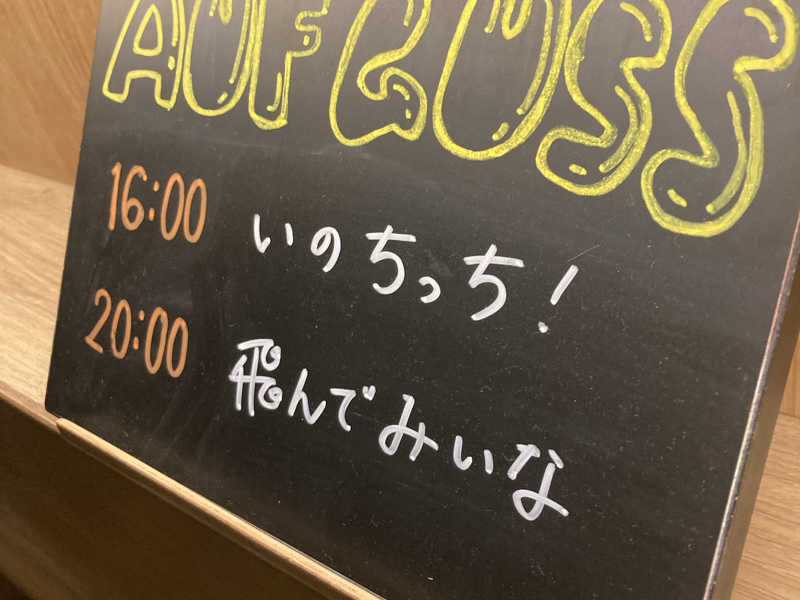 AUFGUSS
16:00 いのちっち!
20:00 飛んでみいな